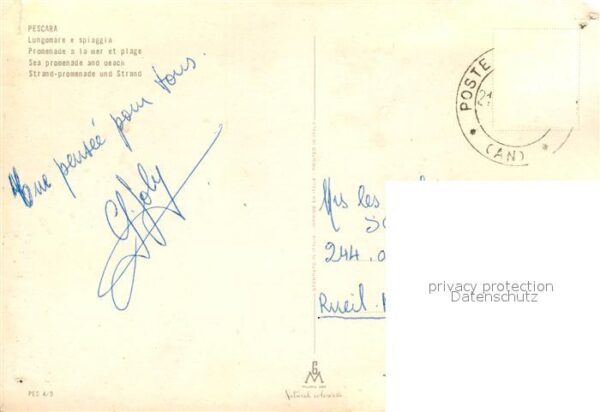 PESCARA
Lungomare e spiaggia
Promenade a la mer et plage
Sea promenade and beach
Strand-promenade und Strand
Une pensée pour tous.
G. Joly
POSTE
(AN)
Mrs les
244.
Rueil.
privacy protection
Datenschutz
PES 4/9